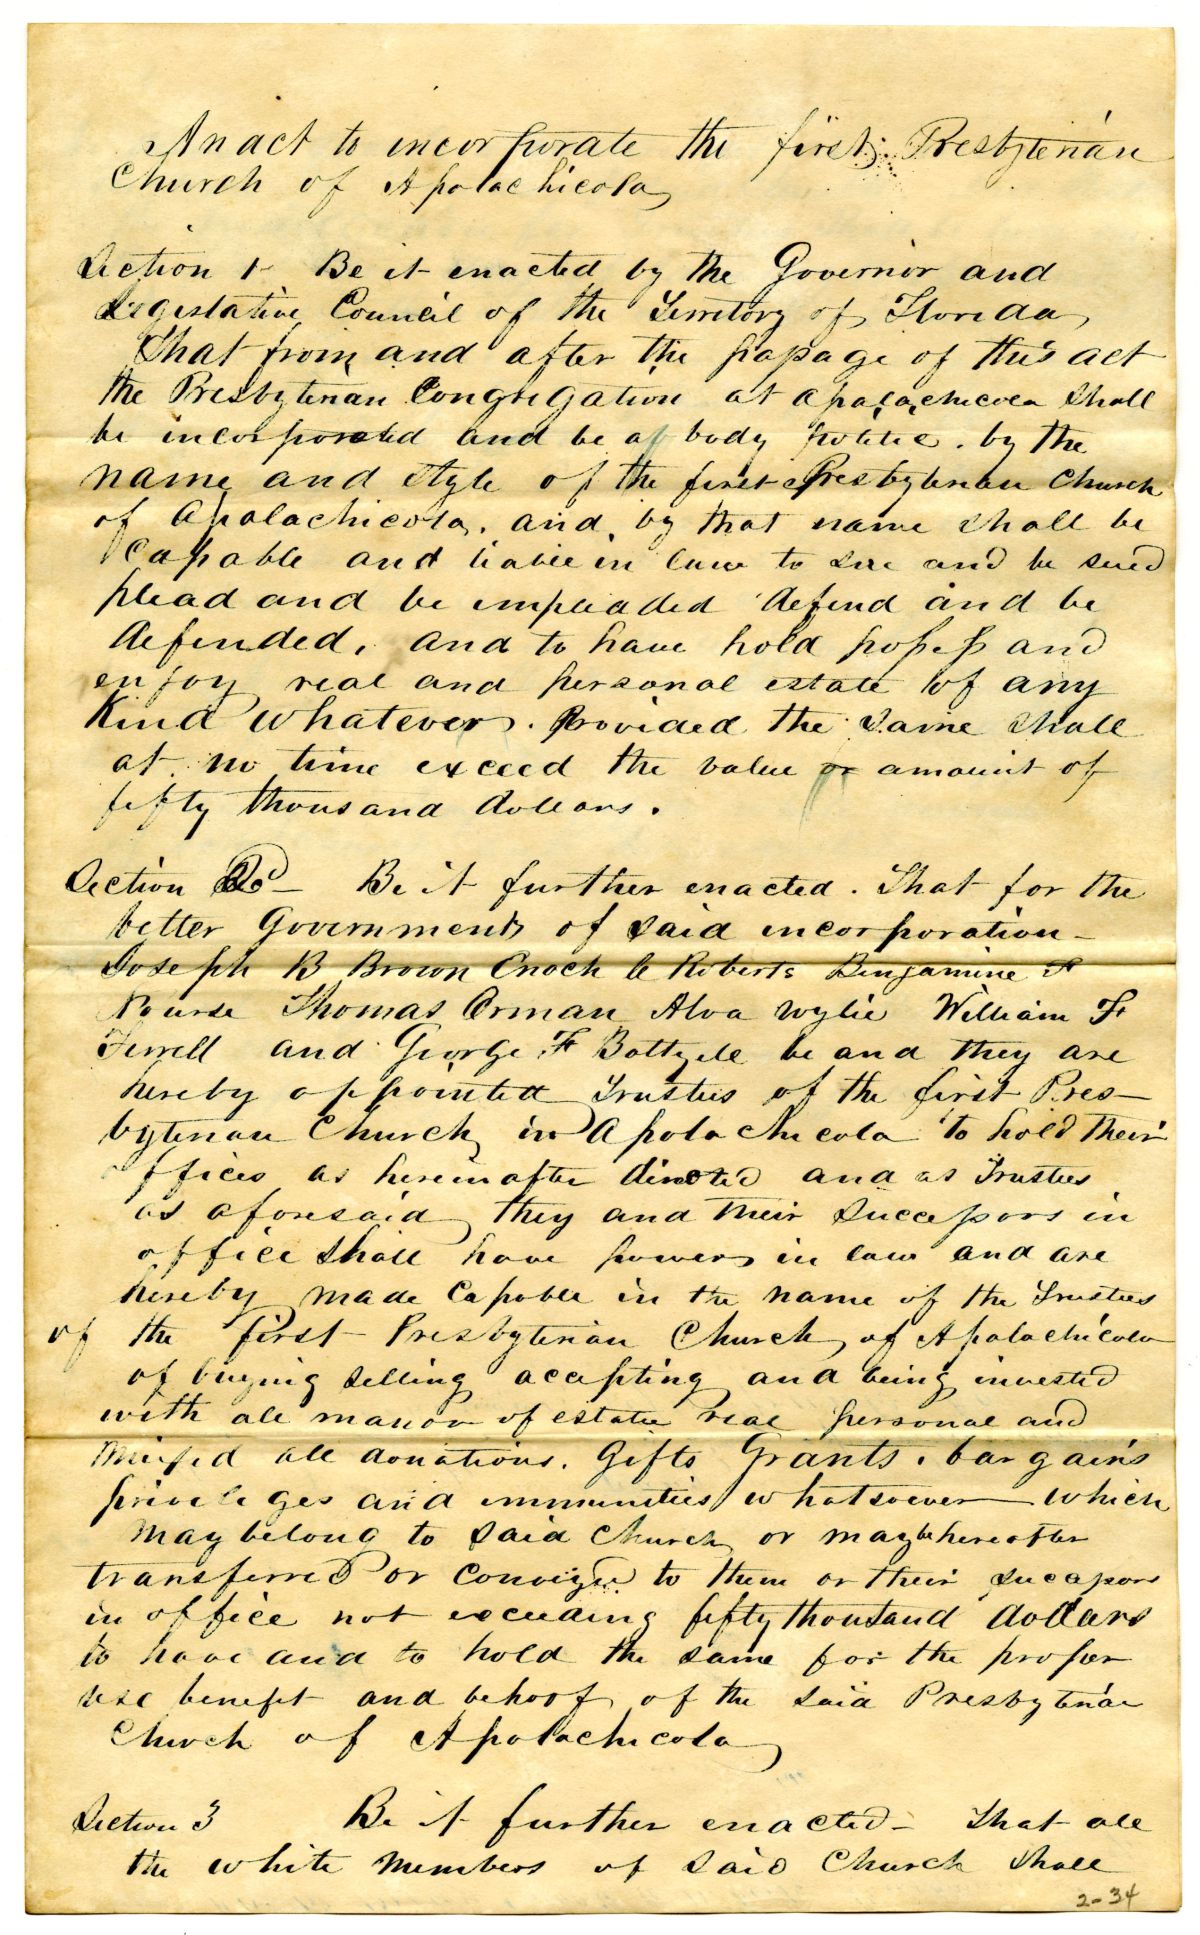 An act to incorporate the first Presbyterian
Church of Apolachicola
Section 1 Be it enacted by the Governor and
Legislative Council of the Territory of Florida,
That from and after the passage of this act
the Presbyterian Congregation at Apalachicola shall
be incorporated and be a body politic. by the
name and style of the first Presbyterian Church
of Apalachicola. and by that name shall be
capable and liable in law to sue and be sued
plead and be impleaded defend and be
defended, and to have hold possess and
enjoy real and personal estate of any
Kind whatever. Provided the same shall
at no time exceed the value or amount of
fifty thousand dollars.
Section 2 – Be it further enacted. That for the
better Government of said incorporation –
Joseph B Brown Enoch C Roberts Benjamine F
Nourse Thomas Orman Alva Wylie William F
Ferrell and George F be and they are
hereby appointed Trustees of the first Pres–
byterian Church in Apolachicola to hold their
offices as hereinafter directed and as Trustees
as aforesaid they and their successors in
office shall have powers in law and are
hereby made capable in the name of the Trustees
of the first Presbyterian Church of Apalachicola
of buying selling accepting and being invested
with all manor of estate real personal and
Mixed all donations. Gifts Grants. bargains
privileges and immunities whatsoever which
may belong to said Church or may be hereafter
transferred or conveyed to them or their successors
in office not exceeding fifty thousand dollars
to have and to hold the same for the proper
use benefit and behoof of the said Presbyterian
Church of Apolachicola
Section 3 Be it further enacted – That all
the white members of said Church shall
2-34